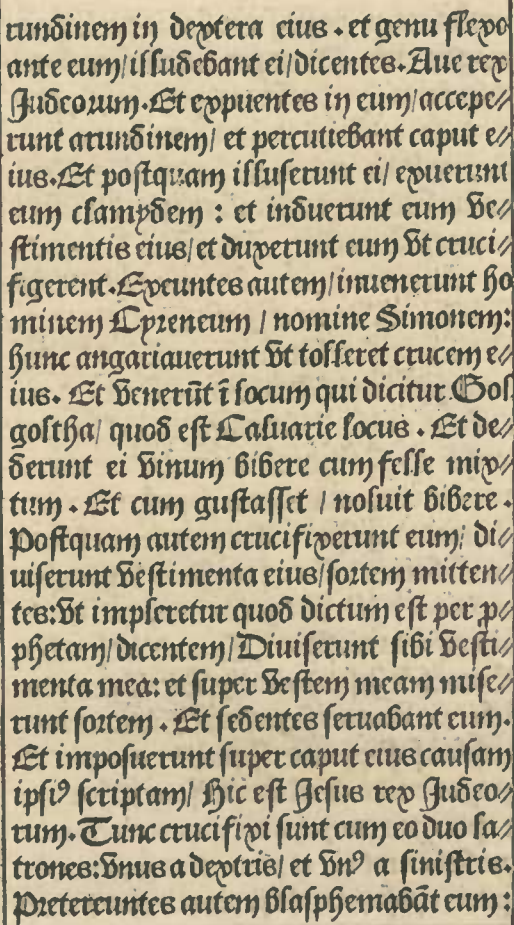 rundinem in dextera eius . et genu flexo
ante eum/ illudebant ei/ dicentes. Aue rex
Judeorum. Et expuentes in eum/ accepe⸗
runt arundinem/ et percutiebant caput e⸗
ius. Et postquam illuserunt ei/ exuerunt
eum clampdem : et induerunt eum ve⸗
stimentis eius/ et duxerunt eum vt cruci
figerent. Exeuntes autem/ inuenerunt ho
minem Cyreneum / nomine Simonem:
hunc angariauerunt vt tolleret crucem e⸗
ius. Et venerūt ī locum qui dicitur Gol
goltha/ quod est Caluarie locus . Et de⸗
derunt ei vinum bibere cum felle mix⸗
tum . Et cum gustasset / noluit bibere .
Postquam autem crucifixerunt eum/ di⸗
uiserunt vestimenta eius/ sortem mitten⸗
tes: vt impleretur quod dictum est per ꝓ⸗
phetam/ dicentem/ Diuiserunt sibi vesti⸗
menta mea: et super vestem meam mise⸗
runt sortem . Et sedentes seruabant eum.
Et imposuerunt super caput eius causam
ipsiꝰ scriptam/ Hic est Jesus rex Judeo⸗
rum. Tunc crucifixi sunt cum eo duo la⸗
trones: vnus a dextris/ et vnꝰ a sinistris.
Pretereuntes autem blasphemabāt eum :